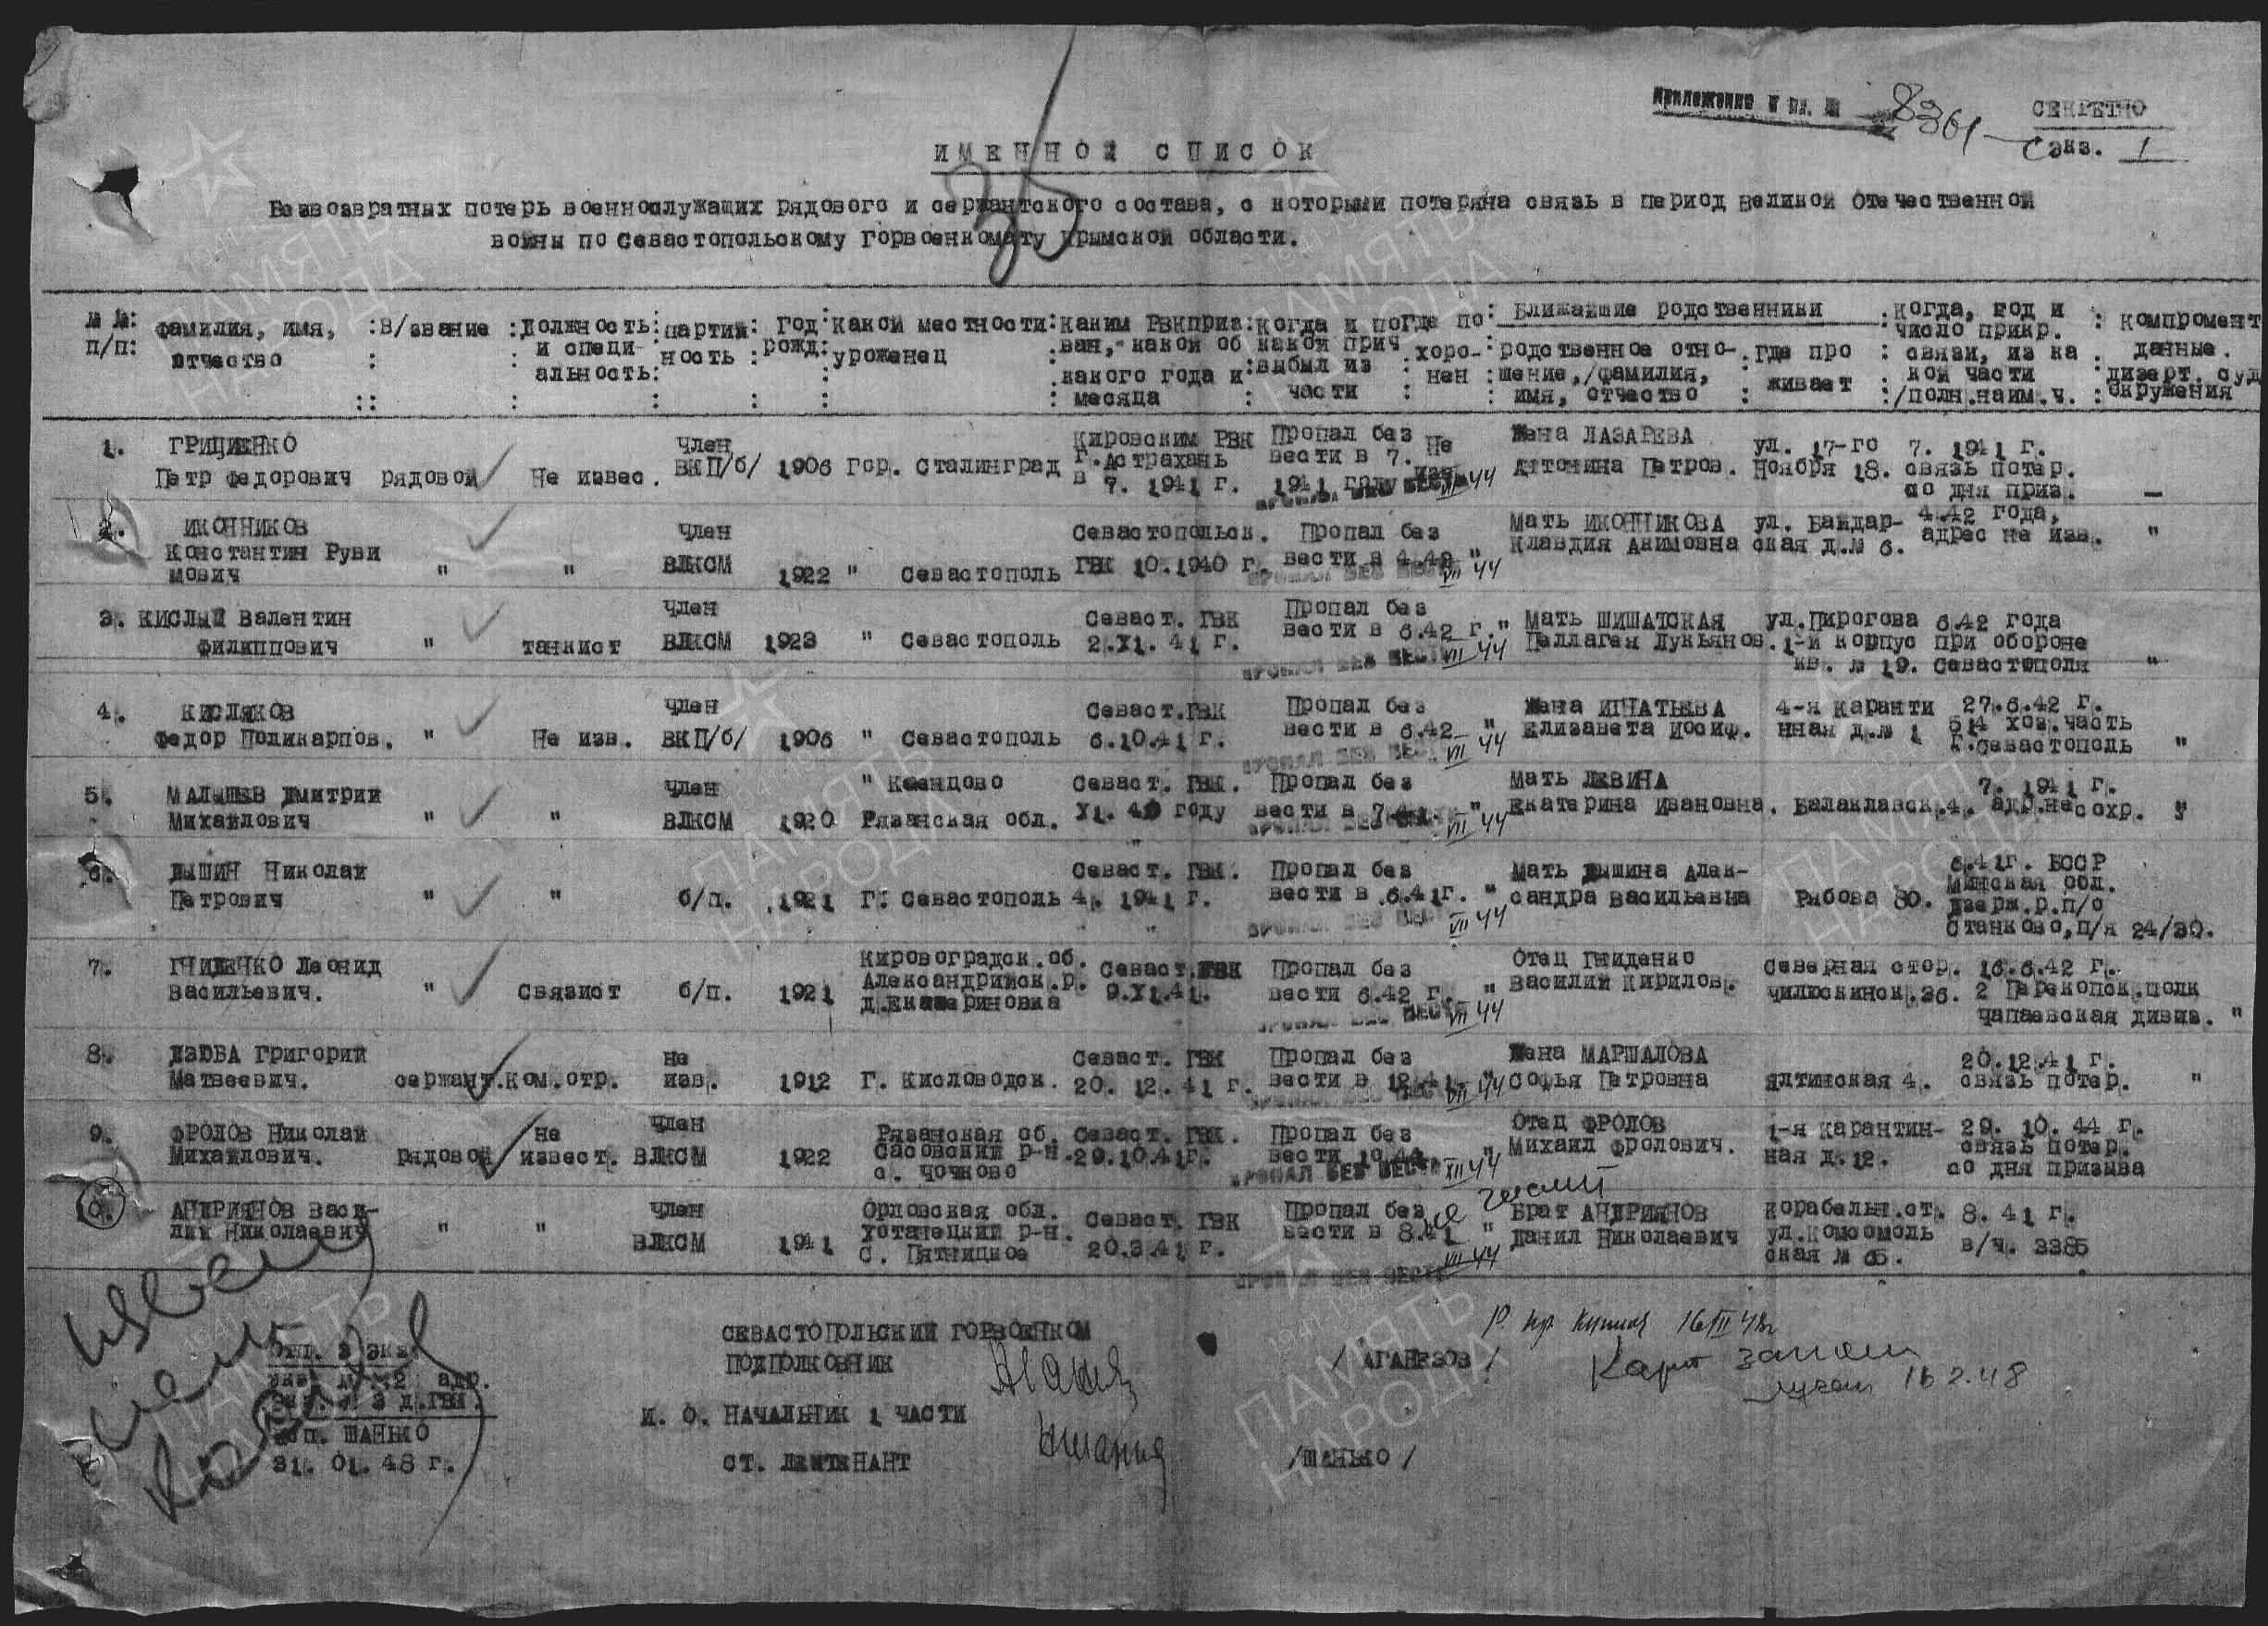 Приложение к вх. № 8361с
СЕКРЕТНО
Экз. 1
ИМЕННОЙ СПИСОК
35
Безвозвратных потерь военнослужащих рядового и сержантского состава, с которыми потеряна связь в период Великой Отечественной
войны по Севастопольскому Горвоенкомату Крымской области.
№ №: Фамилия, имя, :В/звание :Должность: партий: Год: Какой местности: Каким РВК приз: Когда и по: Где по : Ближайшие родственники :Когда, год и : Компромент
п/п: отчество : : и специ- ность : рожд: уроженец : ван, какой об какой прич. хоро- : родственное отно-. где про : число прикр. данные.
альность: какого года и: выбыл из нен : шение,/фамилия, живает : связи, из ка . дизерт. суд
:: : : : : : месяца : части : : имя, отчество : кой части :/полн.наим.ч. : окружения
1. ГРИЦИЕНКО Член Кировским РВК Пропал без Не Жена ЛАЗАРЕВА ул. 17-го 7. 1941 г.
Петр Федорович рядовой Не извес. ВКП/б/ 1906 Гор. Сталинград Г.Астрахань вести в 7. изв Антонина Петров. Ноября 18. связь потер.
в 7. 1941 г. 1941 году VII 44 со дня приз. —
ПРОПАЛ БЕЗ ВЕСТИ
2. ИКОННИКОВ Член Севастопольск. Пропал без Мать ИКОННИКОВА ул. Байдар- 4.42 года,
Константин Руви ВЛКСМ ГВК 10.1940 г. вести в 4.42 " Клавдия Акимовна ская д.№ 6. адрес не изв. "
мович " " 1922 " Севастополь ПРОПАЛ БЕЗ ВЕСТИ VII 44
3. КИСЛЫЙ Валентин Член Севаст. ГВК Пропал без Мать ШИШАТСКАЯ ул.Пирогова 6.42 года
Филиппович " танкист ВЛКСМ 1923 " Севастополь 2.XI. 41 г. вести в 6.42 г. " Пеллагея Лукьянов. 1-й корпус при обороне
ПРОПАЛ БЕЗ ВЕСТИ VII 44 кв. № 19. Севастополя "
4. КИСЛЯКОВ Член Севаст.ГВК Пропал без Жена ИГНАТЬЕВА 4-я Каранти 27.6.42 г.
Федор Поликарпов. " Не изв. ВКП/б/ 1906 " Севастополь 6.10.41 г. вести в 6.42 " Елизавета Иосиф. нная д.№ 1 514 хоз.часть
ПРОПАЛ БЕЗ ВЕСТИ VII 44 г.Севастополь "
5. МАЛЫШЕВ Дмитрий Член " Ксендово Севаст. ГВК. Пропал без Мать ЛЕВИНА 7. 1941 г.
Михайлович " " ВЛКСМ 1920 Рязанская обл. XI. 40 году вести в 7.41. " Екатерина Ивановна. Балаклавск.4. адр.не сохр. "
ПРОПАЛ БЕЗ ВЕСТИ VII 44
6. ДЫШИН Николай Севаст. ГВК. Пропал без Мать Дышина Алек- 6.41г. БССР
Петрович " " б/п. 1921 Г. Севастополь 4. 1941 г. вести в 6.41г. " сандра Васильевна Рябова 30. Минская обл.
ПРОПАЛ БЕЗ ВЕСТИ VII 44 Дзерж.р.п/о
Станково,п/я 24/30.
7. ГНИДЕНКО Леонид Кировоградск.об. Севаст.ГВК Пропал без Отец Гниденко Северная стор. 16.6.42 г.
Васильевич. " Связист б/п. 1921 Александрийск.р. 9.XI.41. вести 6.42 г. " Василий Кирилов. Чилюскинск.36. 2 Перекопск.полк
д.Екатериновка ПРОПАЛ БЕЗ ВЕСТИ VII 44 Чапаевская дивиз. "
8. ДЗЮБА Григорий не Севаст. ГВК Пропал без Жена МАРШАЛОВА 20.12.41 г.
Матвеевич. сержант.ком.отр. изв. 1912 Г. Кисловодск. 20. 12. 41 г. вести в 12.41. " Софья Петровна Ялтинская 4. связь потер. "
ПРОПАЛ БЕЗ ВЕСТИ VII 44
9. ФРОЛОВ Николай не Член Рязанская об. Севаст. ГВК. Пропал без Отец ФРОЛОВ 1-я Карантин- 29. 10. 44 г.
Михайлович. рядовой извест. ВЛКСМ 1922 Сасовский р-н. 29.10.41г. вести 10.44 " Михаил Фролович. ная д.12. связь потер.
с. Чочково ПРОПАЛ БЕЗ ВЕСТИ XII 44 со дня призыва
10. АНДРИЯНОВ Васи- Член Орловская обл. Севаст. ГВК Пропал без Брат АНДРИЯНОВ Корабельн.ст. 8. 41 г.
лий Николаевич " " ВЛКСМ 1941 Устанецкий р-н. 20.3.41 г. вести в 8.41 " Данил Николаевич ул.Комсомоль в/ч. 3385
С. Пятницкое ская № 65.
ПРОПАЛ БЕЗ ВЕСТИ VII 44
СЕВАСТОПОЛЬСКИЙ ГОРВОЕНКОМ
ПОДПОЛКОВНИК / АГАНЕЗОВ /
И. О. НАЧАЛЬНИК 1 ЧАСТИ
СТ. ЛЕЙТЕНАНТ /ШАНЬКО /
Отп. 3 экз.
экз. № 1-2 адр.
экз. № 3 д.ГВК.
исп. ШАНЬКО
31. 01. 48 г.
16/II 48г
Карт
16 2.48
ПАМЯТЬ
НАРОДА